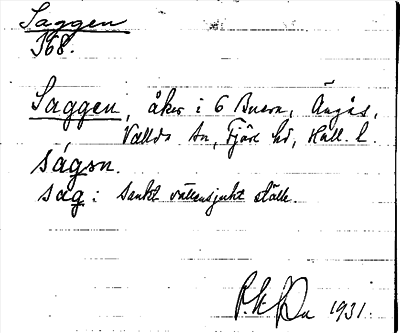 Saggen
368.
Saggen, åker i 6 Buera, Ängås,
Vallda sn, Fjäre hd, Hall. l.
ságən.
sag : sankt vattensjukt ställe.
1931.